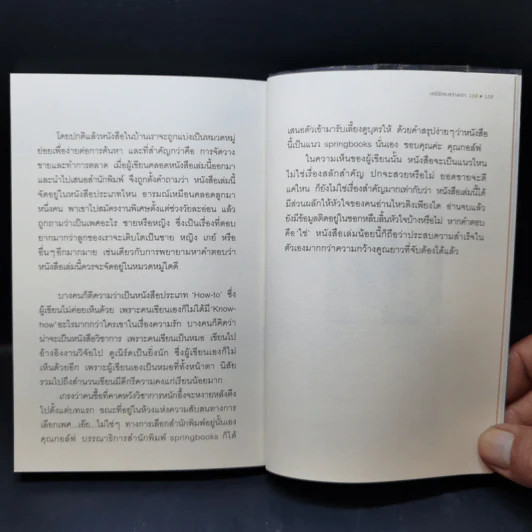 โดยปกติแล้วหนังสือในบ้านเราจะถูกแบ่งเป็นหมวดหมู่
ย่อยเพื่อง่ายต่อการค้นหา และที่สำคัญกว่าคือ การจัดวาง
ขายและทำการตลาด เมื่อผู้เขียนคลอดหนังสือเล่มนี้ออกมา
และนำไปเสนอสำนักพิมพ์ จึงถูกตั้งคำถามว่า หนังสือเล่มนี้
จัดอยู่ในหนังสือประเภทไหน อารมณ์เหมือนคลอดลูกมา
หนึ่งคน พาเขาไปสมัครงานพิเศษตั้งแต่ช่วงวัยละอ่อน แล้ว
ถูกถามว่าเป็นเพศอะไร ชายหรือหญิง ซึ่งเป็นเรื่องที่ตอบ
ยากมากว่าลูกของเราจะเติบโตเป็นชาย หญิง เกย์ หรือ
อื่นๆอีกมากมาย เช่นเดียวกับการพยายามหาคำตอบว่า
หนังสือเล่มนี้ควรจะจัดอยู่ในหมวดหมู่ใดดี
บางคนก็ตีความว่าเป็นหนังสือประเภท 'How-to' ซึ่ง
ผู้เขียนไม่ค่อยเห็นด้วย เพราะคนเขียนเองก็ไม่ได้มี 'Know-
how' อะไรมากกว่าใครเขาในเรื่องความรัก บางคนก็คิดว่า
น่าจะเป็นหนังสือวิชาการ เพราะคนเขียนเป็นหมอ เขียนไป
อ้างอิงงานวิจัยไป ดูเนิร์ดเป็นยิ่งนัก ซึ่งผู้เขียนเองก็ไม่
เห็นด้วยอีก เพราะผู้เขียนเองเป็นหมอที่ทั้งหน้าตา นิสัย
รวมไปถึงสำนวนเขียนมีดีกรีความคงแก่เรียนน้อยมาก
เกรงว่าคนซื้อที่คาดหวังวิชาการหนักอึ้งจะหงายหลังตึง
ไปตั้งแต่บทแรก ขณะที่อยู่ในห้วงแห่งความสับสนทางการ
เลือกเพศ...เอ้ย...ไม่ใช่ๆ ทางการเลือกสำนักพิมพ์อยู่นั้นเอง
คุณกอล์ฟ บรรณาธิการสำนักพิมพ์ springbooks ก็ได้
เสนอตัวเข้ามารับเลี้ยงดูบุตรให้ ด้วยคำสรุปง่ายๆว่าหนังสือ
นี้เป็นแนว springbooks นั่นเอง ขอบคุณค่ะ คุณกอล์ฟ
ในความเห็นของผู้เขียนนั้น หนังสือจะเป็นแนวไหน
ไม่ใช่เรื่องสลักสำคัญ ปกจะสวยหรือไม่ ยอดขายจะดี
แค่ไหน ก็ยังไม่ใช่เรื่องสำคัญมากเท่ากับว่า หนังสือเล่มนี้ได้
มีส่วนผลักให้หัวใจของคนอ่านไหวติงเพียงใด อ่านจบแล้ว
ยังมีข้อมูลติดอยู่ในซอกหลืบสี่นหัวใจบ้างหรือไม่ หากคำตอบ
คือ 'ใช่' หนังสือเล่มน้อยนี้ก็ถือว่าประสบความสำเร็จใน
ตัวเองมากกว่าความกว้างคูณยาวที่จับต้องได้แล้ว